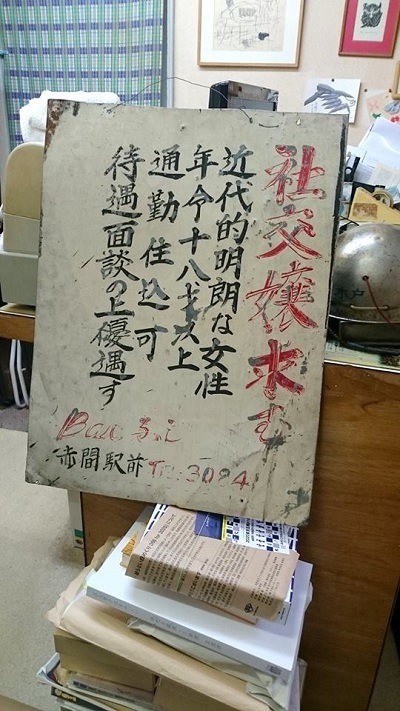 社交嬢求む
近代的明朗な女性
年令十八才以上
通勤 住込可
待遇面談の上優遇す
赤間駅前 Tel. 3094